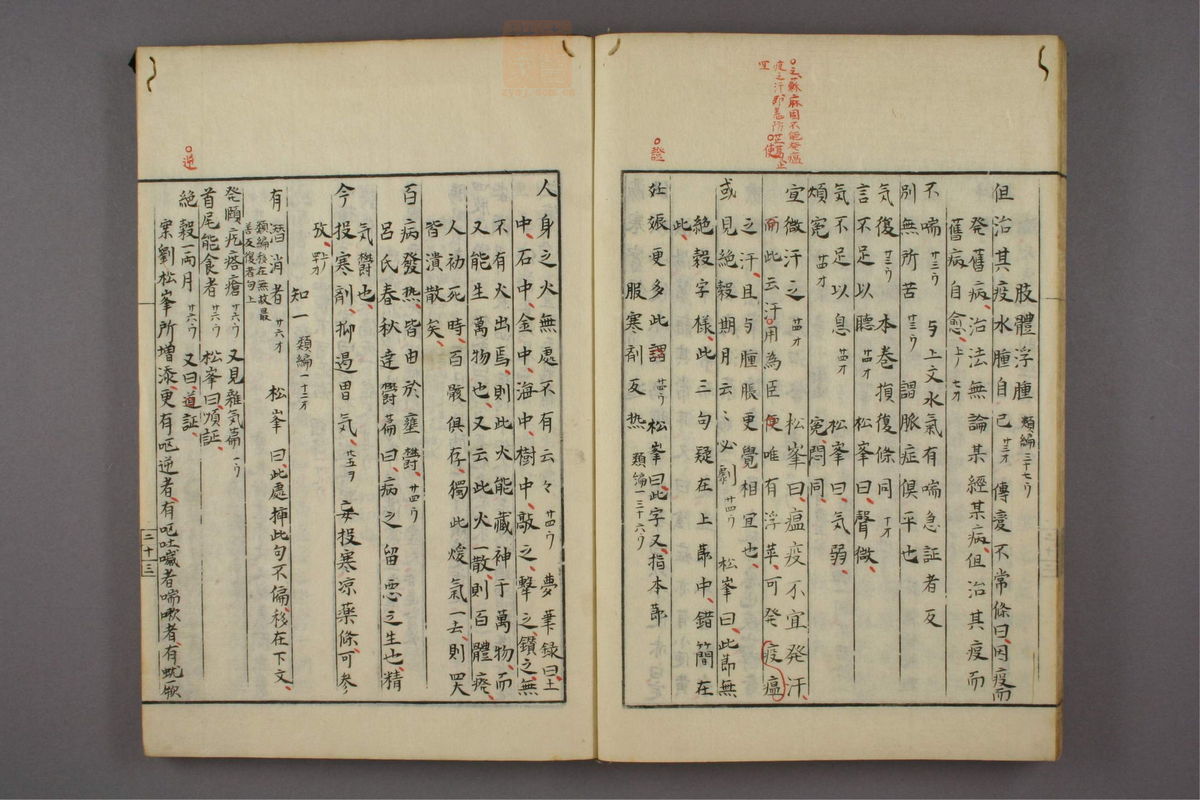 肢體浮腫 類編三十七ウ
但治其疫水腫自已 廿三オ 傳変不常條曰、因疫而
発舊病、治法無論某經某病、但治其疫而
舊病自愈、上ノ七オ
不喘 廿三ウ 与上文水氣有喘急証者反
別無所苦 廿三ウ 謂脈症俱平也
気復 廿三ウ 本巻損復條同 丁オ
言不足以聽 廿四オ 松峯曰、聲微、
気不足以息 廿四オ 松峯曰、気弱、
煩寃 廿四オ 寃悶同、
宜微汗之 廿四オ 松峯曰、瘟疫不宜発汗、
而此云汗、用為臣使、唯有浮萍、可発疫瘟
之汗、且与腫脹更覺相宜也、
或見絶穀期月云〻必劇 廿四ウ 松峯曰、此節無
絶穀字樣、此三句疑在上節中、錯簡在
此、
妊娠更多此謂 廿四ウ 松峯曰、此字又指本節
服寒劑反热 類編一三十六ウ
○云蘇麻固不能発瘟
疫之汗即
宜
○使
○證
人身之火無處不有云々 廿四ウ 夢筆録曰、土
中、石中、金中、海中、樹中、敲之、擊之、鑽之、無
不有火出焉、則此火能藏神于萬物、而
又能生萬物也、又云此火一散、則百體瘩、
人初死時、百骸俱存、獨此煖氣一去、則四大
皆潰散矣、
百病發热、皆由於壅欝、廿四ウ
呂氏春秋達欝篇曰、病之留、悪之生也、精
気欝也、
今投寒劑、抑遏胃気、廿五ヲ 妄投寒凉薬條、可参
攷、上ノ四オ
知一 類編一十三オ
有潛消者 廿六オ 松峯曰、此處挿此句不倫、移在下文、
類編移在無故最
善反復者句上
発頤疙瘩瘡 廿六ウ 又見雜気篇 一ウ
首尾能食者 廿六ウ 松峯曰、順証、
絶穀一兩月 廿六ウ 又曰、道証、
案劉松峯所増添、更有呃逆者、有呕吐噦者、喘嗽者、有蚘厥
二十三
○逆